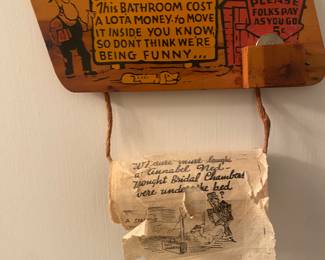 This BATHROOM COST
A LOTA MONEY-to MOVE
IT INSIDE YOU KNOW,
SO DONT THINK WE'RE
BEING FUNNY...
PLEASE
FOLKS PAY
AS YOU GO
5¢
must laugh
at Annabel
thought Bridal Chambers
were under the bed